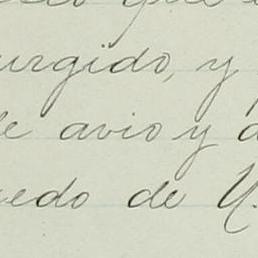 que
urgido, y
de avio y a
uedo de U.